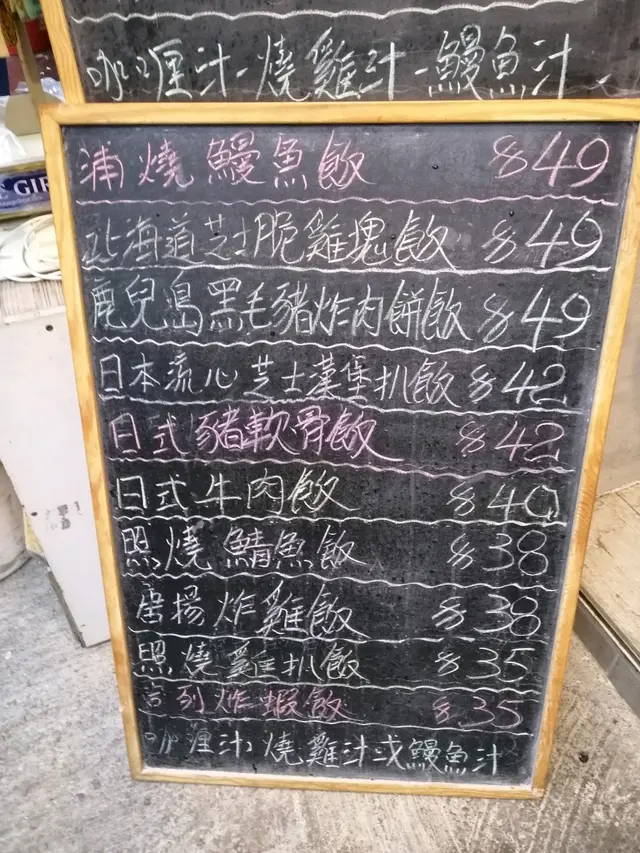 咖喱汁-燒雞汁-鰻魚汁.
GIR
浦燒鰻魚飯 $49
北海道芝士脆雞塊飯 $49
鹿兒島黑毛豬炸肉餅飯 $49
日本流心芝士漢堡扒飯 $42
日式豬軟骨飯 $42
日式牛肉飯 $40
照燒鯖魚飯 $38
唐揚炸雞飯 $38
照燒雞扒飯 $35
吉列炸蝦飯 $35
咖喱汁,燒雞汁或鰻魚汁